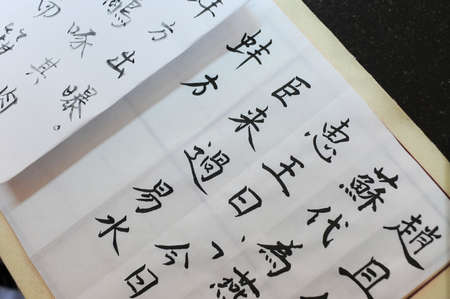 趙且
蘇代為燕
惠王曰、「今日
臣来過易水
蚌方
方出曝。
鷸啄其肉